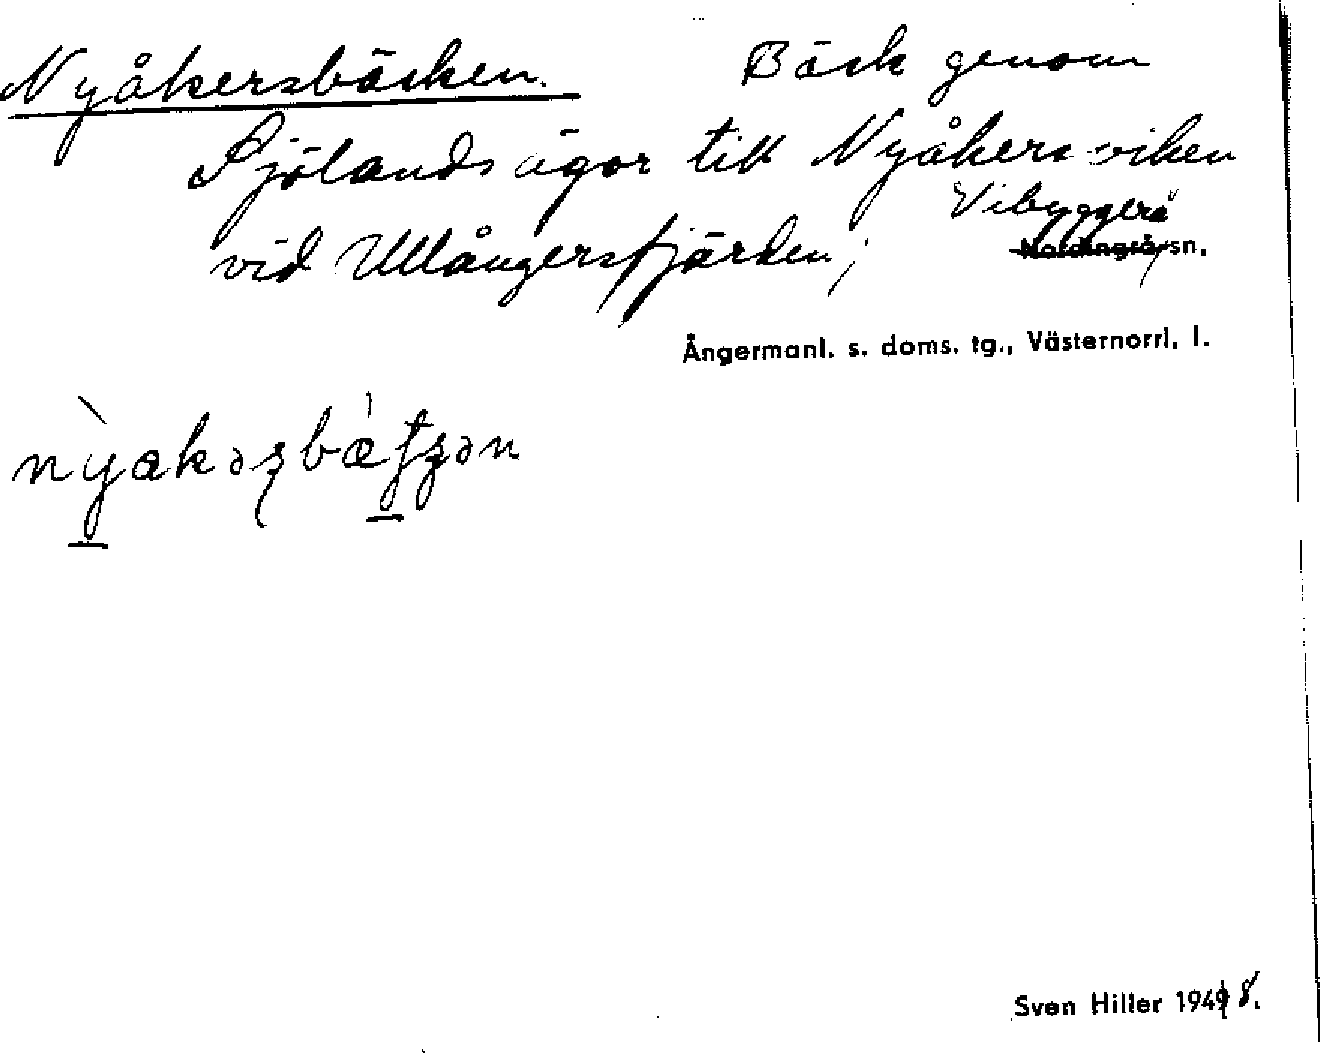 Nyåkersbäcken. Bäck genom
Sjölands ägor till Nyåkersviken
vid Ullångersfjärden; Vibyggerå
Nordingrå sn.
Ångermanl. s. doms. tg., Västernorrl. l.
Sven Hiller 1948.